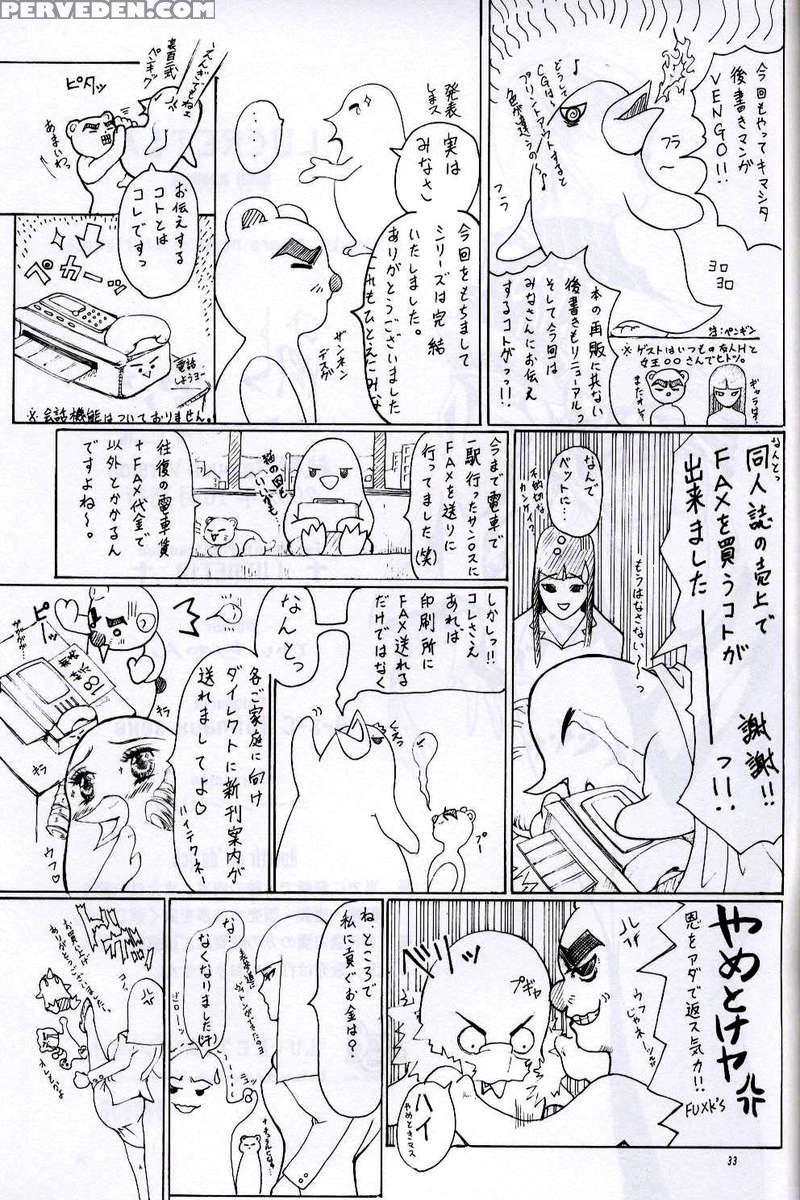 PERVEDEN.COM
今回もやってキマシタ
後書きマンガ
VENGO!!
どうして
CGは〜
プリントアウトすると
色が違うの〜♪
フラ〜
フラ
ヨロ
ヨロ
注:ペンギン
本の再販に共ない
後書きもリニューアルっ
そして今回は
みなさんにお伝え
するコトがっ!!
※ゲストはいつもの友人Hと
女王〇〇さんでヒトツ。
発表
しまス
実は
みなさ
今回をもちまして
シリーズは完結
いたしました。
ありがとうございました
これもひとえにみな
・・・
ザンネン
デスゲ
ピタッ
あまいわっ
お伝えする
コトとは
コレですっ
ペカーッ
電話
しようヨー
※会話機能はついておりません。
なんとっ
同人誌の売上で
FAXを買うコトが
出来ました
―っ!!
謝謝!!
もうはなさない〜っ
なんで
ベットに…
不適切な
カンケイ?
今まで電車で
一駅行ったサンロスに
FAXを送りに
行ってました(笑)
往復の電車賃
+FAX代金で
以外とかかるん
ですよね〜。
しかしっ!!
コレさえ
あれば
印刷所に
FAX送れる
だけではなく
プー
なんとっ
各ご家庭に向け
ダイレクトに新刊案内が
送れましてよ♡
ハイテクネ
ピーッ
キラ
キラ
ウフ♡
やめとけヤ
恩をアダで返ス気カ!!
FUXK'S
ウフ
じゃネー
プギャ
ハイ
やめときマス
ね、ところで
私に貢ぐお金は?
な…
なくなりました(汗)
お買い上げ
ありがとうございましたー
33